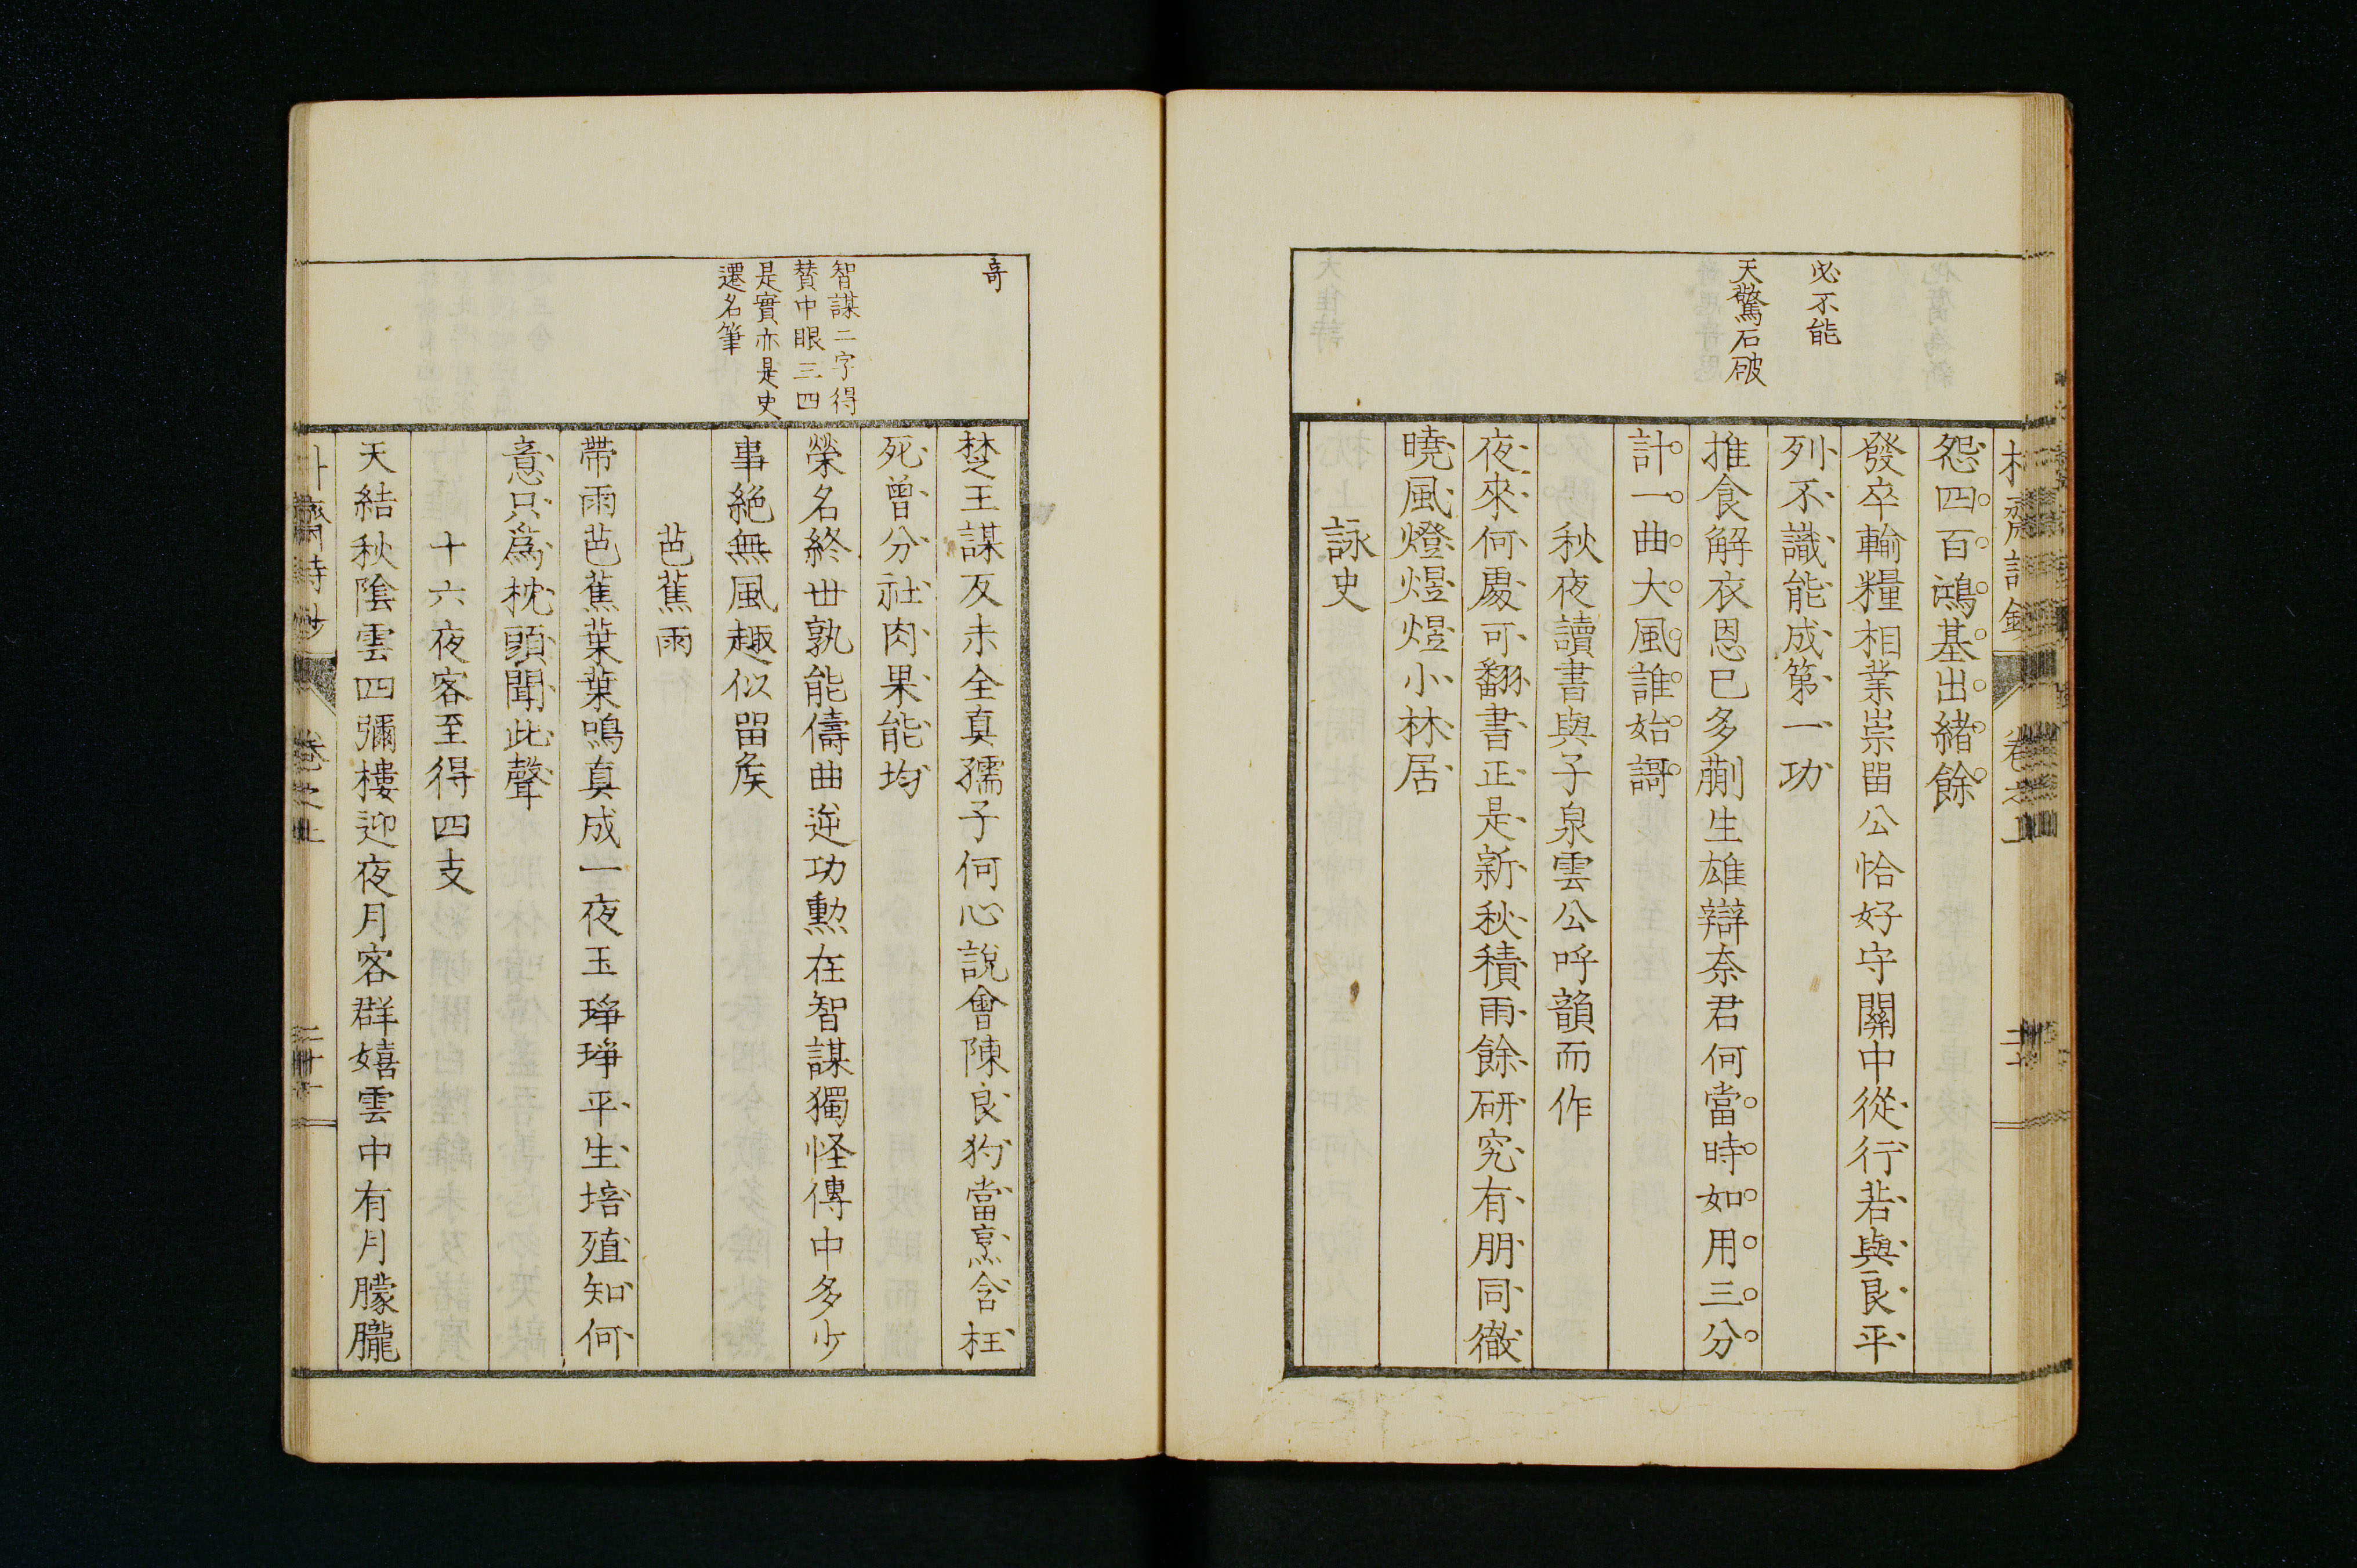 必不能
天驚石破
怨四百鴻基出緒餘
發卒輸糧相業崇畱公恰好守關中從行若與良平
列不識能成第一功
推食解衣恩已多蒯生雄辯奈君何當時如用三分
計一曲大風誰始謌
秋夜讀書與子泉雲公呼韻而作
夜來何處可翻書正是新秋積雨餘研究有朋同徹
曉風燈煜煜小林居
詠史
奇
智謀二字得
賛中眼三四
是實亦是史
遷名筆
楚王謀反未全真孺子何心說會陳良狗當烹含枉
死曾分社肉果能均
榮名終世孰能儔曲逆功勳在智謀獨怪傳中多少
事絕無風趣似畱矦
芭蕉雨
帶雨芭蕉葉葉鳴真成一夜玉琤琤平生培殖知何
意只爲枕頭聞此聲
十六夜客至得四支
天結秋陰雲四彌樓迎夜月客群嬉雲中有月朦朧